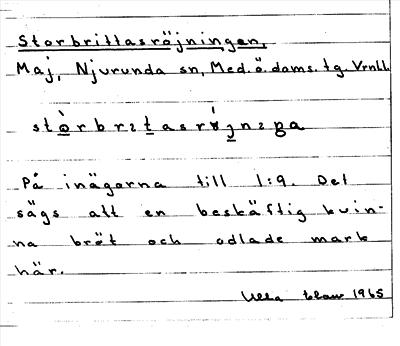 Storbrittasröjningen,
Maj, Njurunda sn, Med. ö. doms. tg. Vrnll.
stòrbrɪtasrǿjnɪŋa
På inägorna till 1:9. Det
sägs att en beskäftig kvin-
na bröt och odlade mark
här.
Ulla 1965